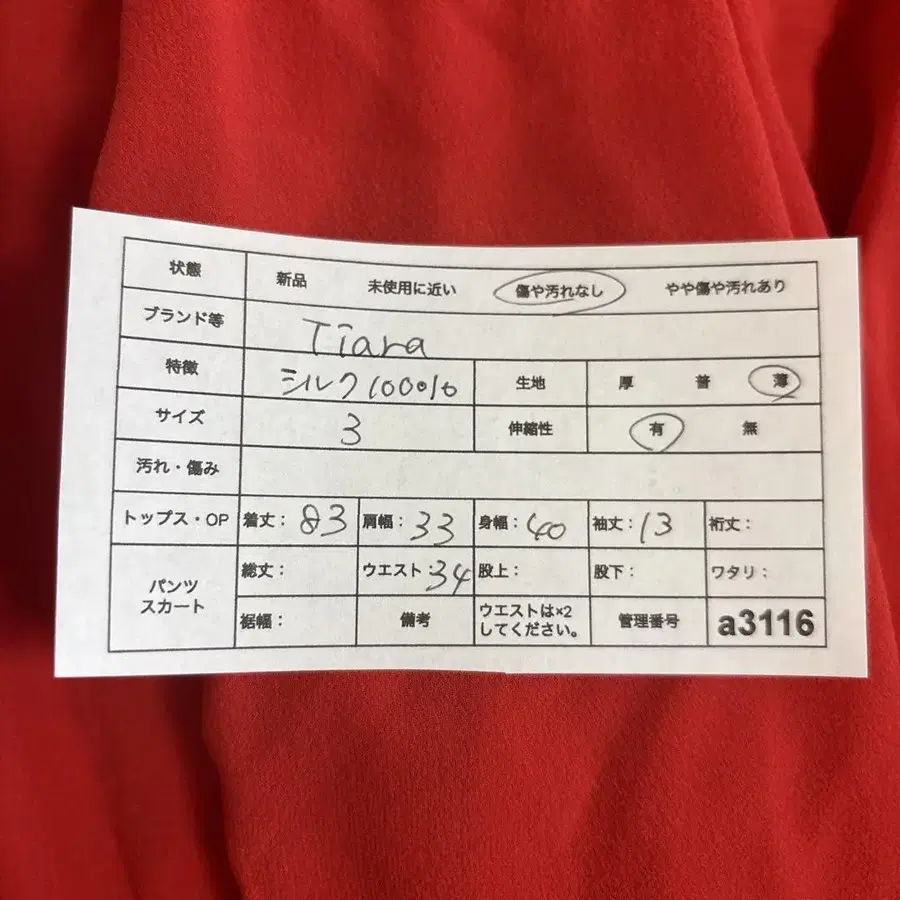 状態 新品 未使用に近い 傷や汚れなし やや傷や汚れあり
ブランド等 Tiara
特徴 シルク100% 生地 厚 普 薄
サイズ 3 伸縮性 有 無
汚れ・傷み
トップス・OP 着丈: 83 肩幅: 33 身幅: 40 袖丈: 13 裄丈:
パンツ
スカート
総丈: ウエスト: 34 股上: 股下: ワタリ:
裾幅: 備考 ウエストは×2
してください。 管理番号 a3116